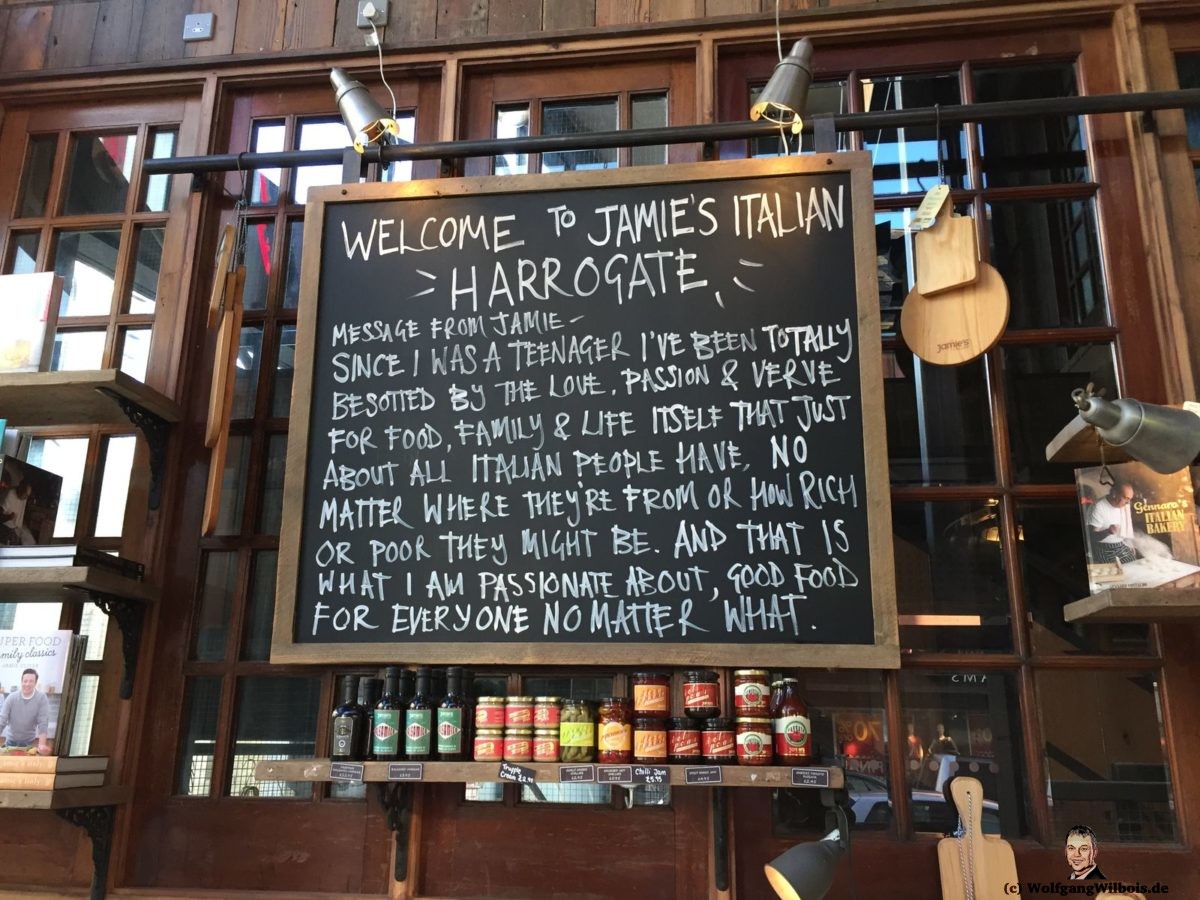 WELCOME TO JAMIE'S ITALIAN
HARROGATE
MESSAGE FROM JAMIE -
SINCE I WAS A TEENAGER I'VE BEEN TOTALLY
BESOTTED BY THE LOVE, PASSION & VERVE
FOR FOOD, FAMILY & LIFE ITSELF THAT JUST
ABOUT ALL ITALIAN PEOPLE HAVE, NO
MATTER WHERE THEY'RE FROM OR HOW RICH
OR POOR THEY MIGHT BE. AND THAT IS
WHAT I AM PASSIONATE ABOUT, GOOD FOOD
FOR EVERYONE NO MATTER WHAT.
jamie's
Gennaro's
ITALIAN
BAKERY
SUPER FOOD
family classics
JAMIE OLIVER
Truffle
Cream £2.95
Chilli Jam
£5.95
70%
(c) WolfgangWilbois.de